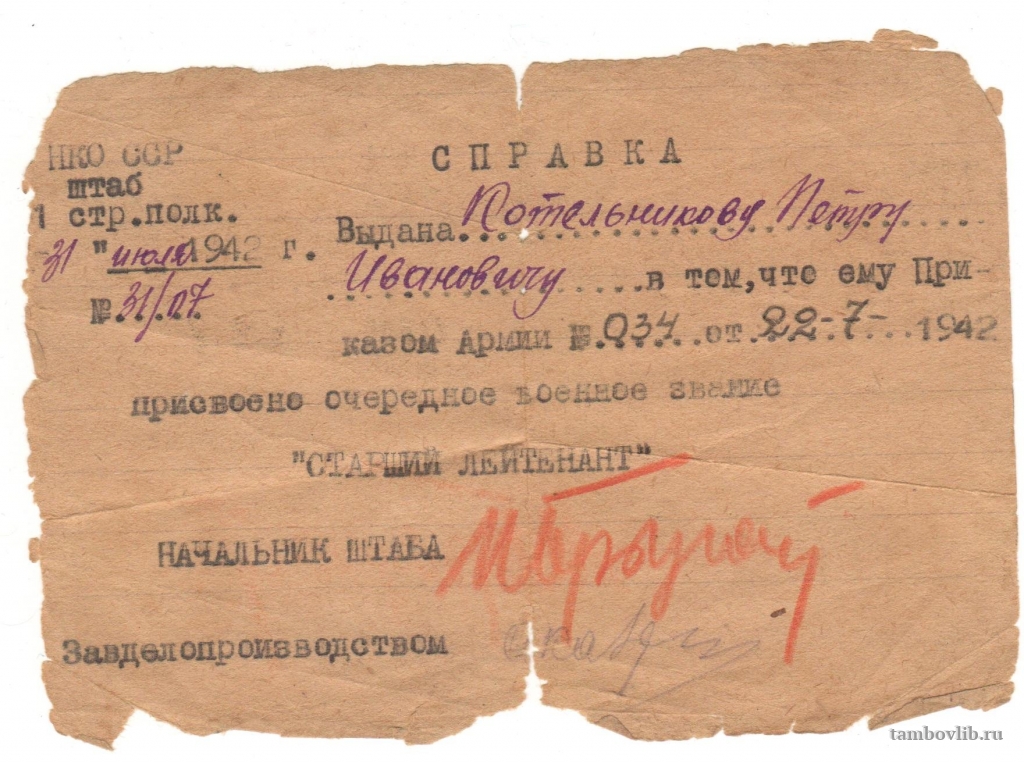 НКО ССР
штаб
1 стр.полк.
31 "июля 1942 г.
№ 31/07
СПРАВКА
Выдана Котельникову Петру
Ивановичу в том, что ему При-
казом Армии № 034 от 22-7- 1942
присвоено очередное военное звание
"СТАРШИЙ ЛЕЙТЕНАНТ"
НАЧАЛЬНИК ШТАБА
Завделопроизводством
tambovlib.ru